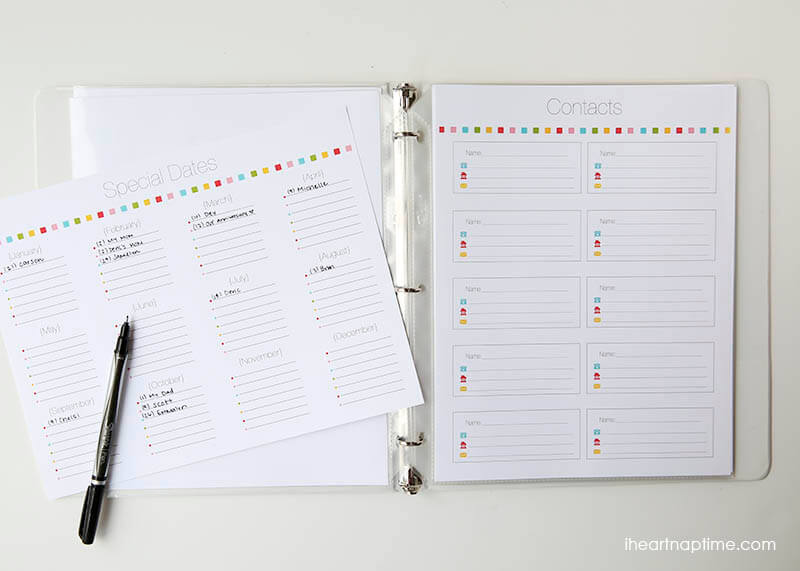 Special Dates
{January}
(21) Carson
{February}
(2) My Mom
(2) Deric's Dad
(29)
{March}
(11) Dev
(13) Our Anniversary ♥
{April}
(9) Michelle
{May}
{June}
{July}
(19) Deric
{August}
(3) Brian
{September}
(9) Chelsi
{October}
(1) My Dad
(9) Scott
(26)
{November}
{December}
Contacts
Name:
Name:
Name:
Name:
Name:
Name:
Name:
Name:
Name:
Name:
iheartnaptime.com